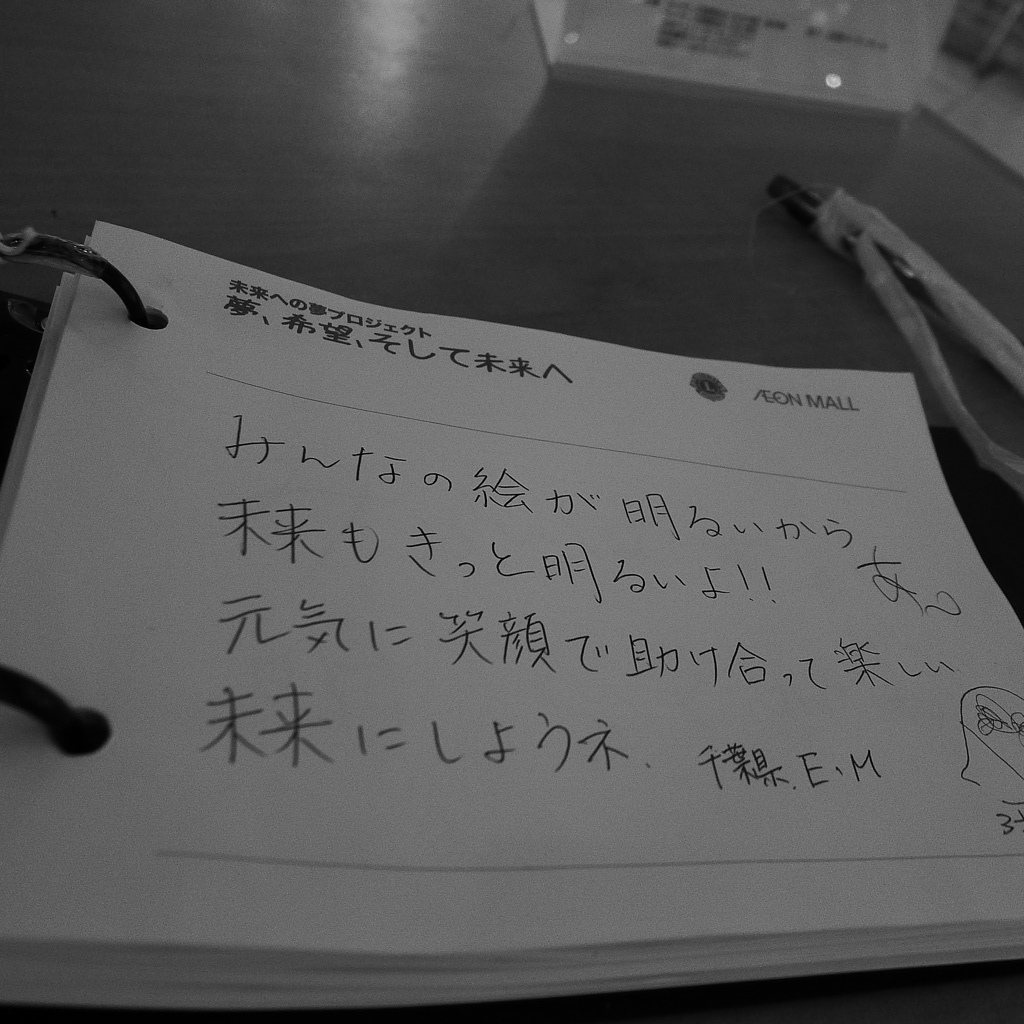 未来への夢プロジェクト
夢、希望、そして未来へ
ÆON MALL
みんなの絵が明るいから
未来もきっと明るいよ!!
元気に笑顔で助け合って楽しい
未来にしようネ.
千葉県. E、M